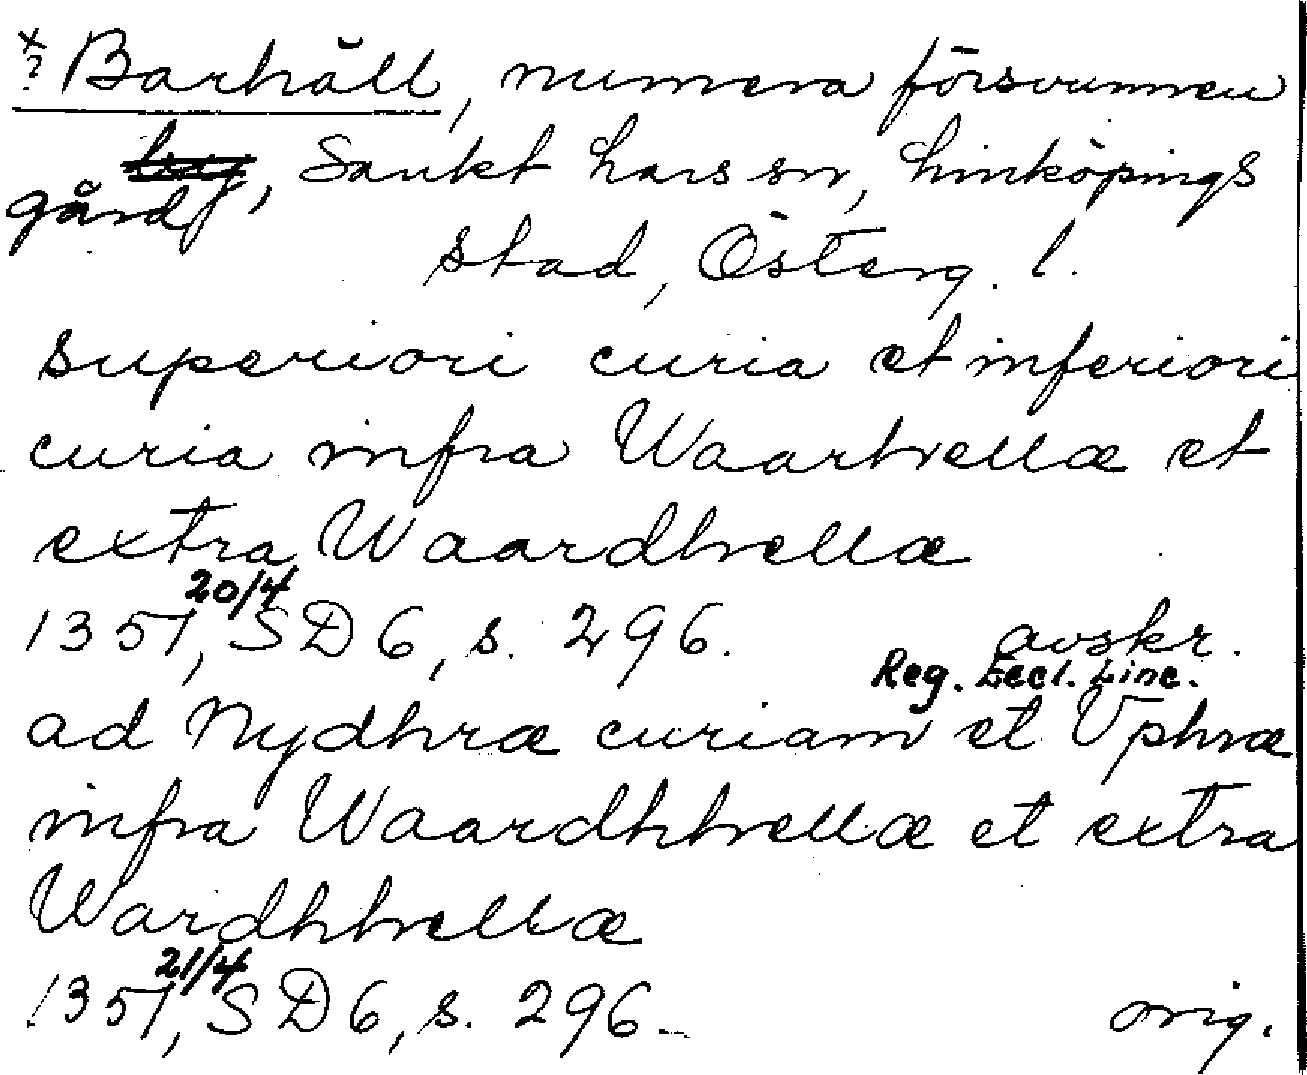 x
? Barhäll, numera försvunnen
gård, Sankt Lars sn, Linköpings
stad, Österg. l.
superiori curia et inferiori
curia infra Waarhvellæ et
extra Waardhvellæ
1351 20/4, SD 6, s. 296. avskr.
Reg. Eccl. Linc.
ad Nydhræ curiam et Vphræ
infra Waardhhvellæ et extra
Wardhhvellæ
1351 21/4, SD 6, s. 296. orig.